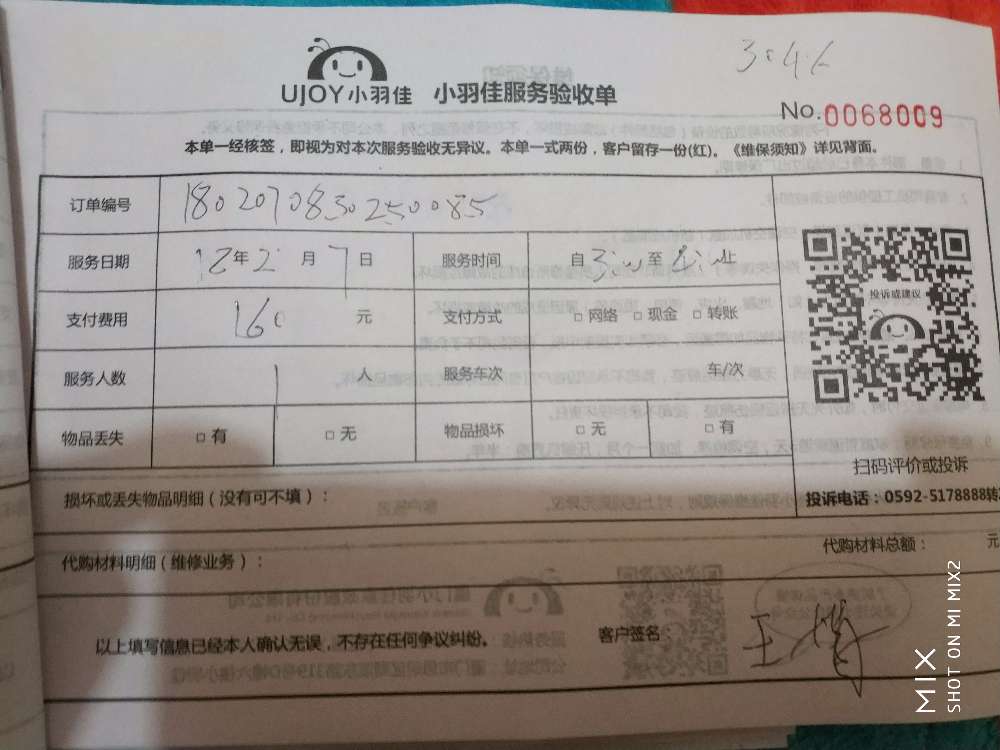 3046
UJOY小羽佳 小羽佳服务验收单
No.0068009
本单一经核签，即视为对本次服务验收无异议。本单一式两份，客户留存一份(红)。《维保须知》详见背面。
订单编号 180207083025008 5
服务日期 18年2月7日 服务时间 自3:00至4:00止
支付费用 160元 支付方式 □网络 □现金 □转账
投诉或建议
服务人数 1人 服务车次 车/次
物品丢失 □有 □无 物品损坏 □无 □有
扫码评价或投诉
损坏或丢失物品明细（没有可不填）：
投诉电话：0592-5178888转
代购材料明细（维修业务）：
代购材料总额： 元
以上填写信息已经本人确认无误，不存在任何争议纠纷。
客户签名： 王
MIX
SHOT ON MI MIX2